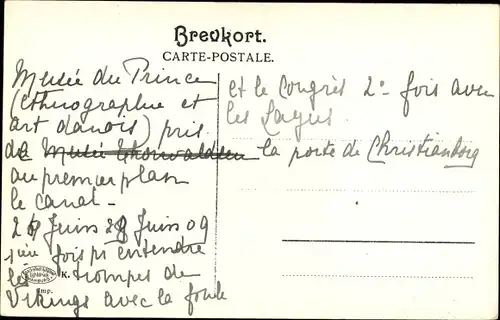 Brevkort.
CARTE-POSTALE.
Musée du Prince
(ethnographie et
art danois) pris
de Musée Thorwaldsen
au premier plan
le canal -
Juin 28 Juin 09
fois pr entendre
les trompes de
Vikings avec la foule
et le Congrès 2e fois avec
les
la porte de Christianborg
K.
Imp.